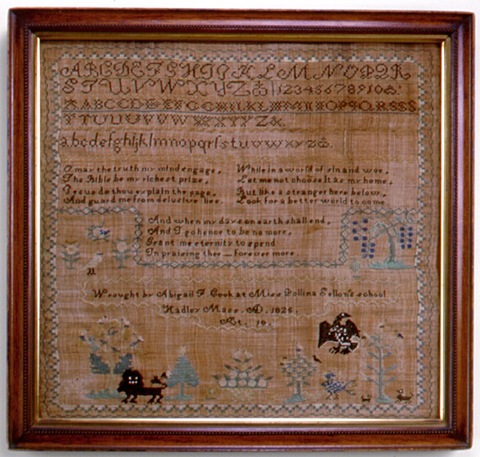 ABCDEFGHIJKLMNOPQR
STUVWXYZ& 12345678910
abcdefghijklmnopqrſstuvwxyz&
O may the truth my mind engage,
The Bible be my richest prize,
Jesus do thou explain the page,
And guard me from delusive lies.
While in a world of sin and woe,
Let me not choose it as my home,
But like a stranger here below,
Look for a better world to come.
And when my days on earth shall end,
And I go hence to be no more,
Grant me eternity to spend
In praising thee forever more
Wrought by Abigail F. Cook at Miss Pollina school
Hadley Mass. AD. 1826.
Æt. 10